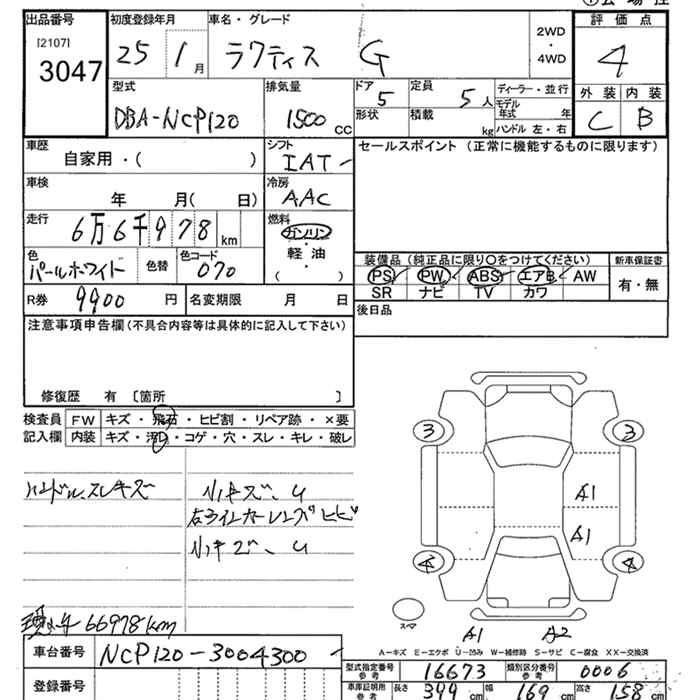 出品番号 初度登録年月 車名・グレード 2WD・4WD 評価点
[2107]
3047 25 1月 ラクティス G 4
型式 排気量 ドア 定員 ディーラー・並行 外装 内装
DBA-NCP120 1500cc 5 5人 モデル年式 年 C B
形状 積載 kg ハンドル 左・右
車歴 シフト セールスポイント (正常に機能するものに限ります)
自家用・( ) IAT
車検 冷房
年 月( 日) AAC
走行 燃料
6万6千978km ガソリン・軽油
( )
色 色替 色コード
パールホワイト 070
装備品 (純正品に限り○をつけてください) 新車保証書
PS PW ABS エアB AW 有・無
SR ナビ TV カワ
R券 9900円 名変期限 月 日 後日品
注意事項申告欄(不具合内容等は具体的に記入して下さい)
修復歴 有 〔箇所 〕
検査員 FW キズ・飛石・ヒビ割・リペア跡・×要
記入欄 内装 キズ・汚れ・コゲ・穴・スレ・キレ・破レ
3 3
ハンドルスレキズ 小キズ、U
A1
右ライトカーレンズヒビ
A1
小キズ、U
4 4
スペア
66978km A1 A2
A-キズ E-エクボ U-凹み W-補修跡 S-サビ C-腐食 XX-交換済
車台番号 NCP120-3004300
型式指定番号 参考 16673 類別区分番号 参考 0006
登録番号
車庫証明用 参考 長さ 399cm 幅 169cm 高さ 158cm